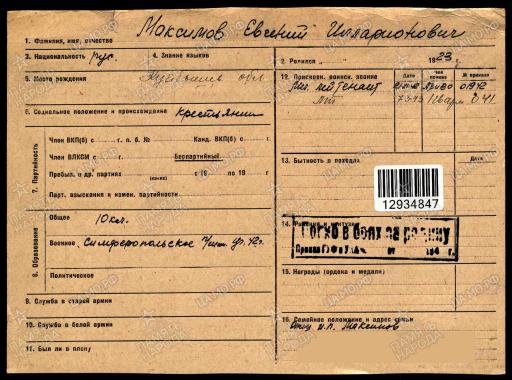 1. Фамилия, имя, отчество Максимов Евгений Илларионович
3. Национальность Рус. 4. Знание языков
5. Место рождения Куйбышев. обл
6. Социальное положение и происхождение Крестьянин
7. Партийность
Член ВКП(б) с г. п. б. № Канд. ВКП(б) с г.
Член ВЛКСМ с г. Беспартийный
Пребыв. в др. партиях с 19 по 19 г.
Парт. взыскания и камен. партийности
8. Образование
Общее 10 кл.
Военное Симферопольское
Политическое
9. Служба в старой армии
10. Служба в белой армии
11. Был ли в плену
2. Родился 1923 г.
12. Присвоен. воинск. звание Дата Чей приказ № приказа
Мл. лейтенант 0192
лт 7.3.43 041
13. Бытность в походах Дата
12934847
14. Ранения и контузии
Погиб в боях за родину
Приказ ГУФ и У.К.А. от 194 г.
15. Награды (ордена и медали)
16. Семейное положение и адрес семьи
Отец И.П. Максимов
ПАМЯТЬ НАРОДА
ЦАМО.РФ